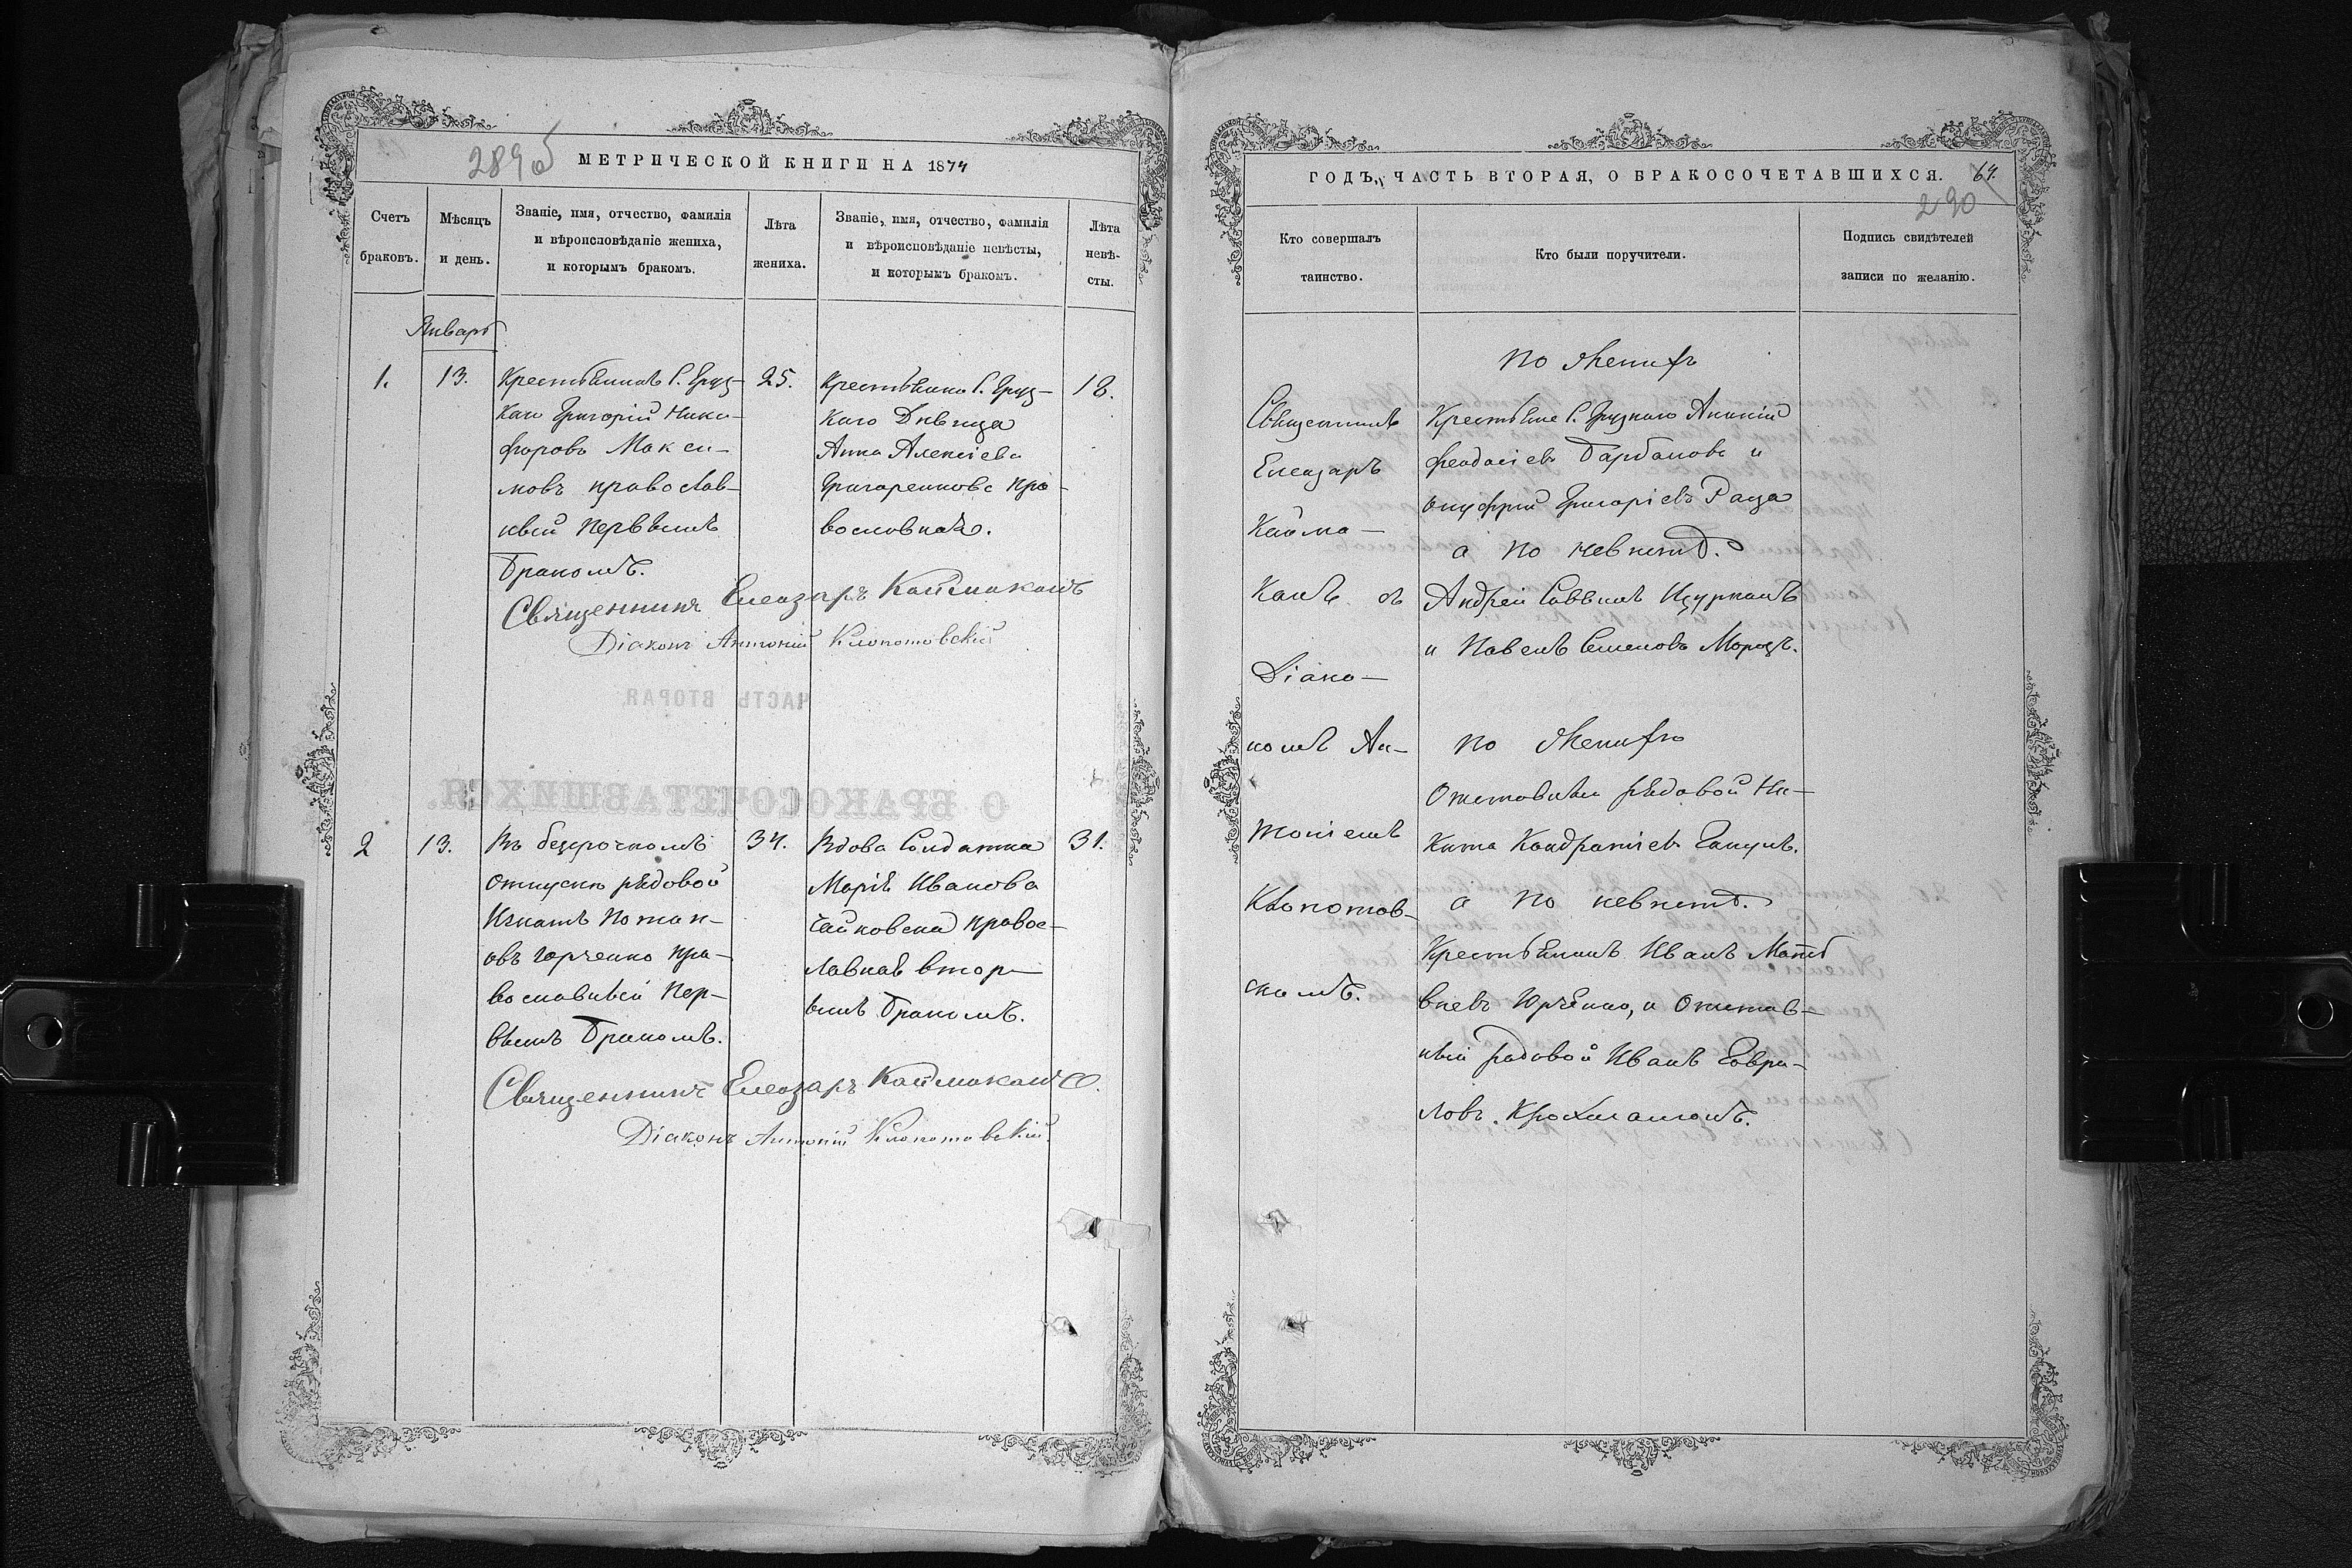 289об
МЕТРИЧЕСКОЙ КНИГИ НА 1874
Счетъ браковъ.
Мѣсяцъ и день.
Званіе, имя, отчество, фамилія
и вѣроисповѣданіе жениха,
и которымъ бракомъ.
Лѣта жениха.
Званіе, имя, отчество, фамилія
и вѣроисповѣданіе невѣсты,
и которымъ бракомъ.
Лѣта невѣ-
сты.
Январь
1.
13.
Крестьянинъ С. Груз-
каго Григорій Ники-
форовъ Макси-
мовъ православ-
ный первымъ
бракомъ.
25.
Крестьянка С. Груз-
каго Дѣвица
Анна Алексіева
Григоренкова пра-
вославная.
18.
Священникъ Елеазаръ Каймаканъ
Діаконъ Антоній Клопотовскій
2
13.
Въ безсрочномъ
отпуску рядовой
Игнатъ Потап-
овъ Юрченко пра-
вославный пер-
вымъ бракомъ.
34.
Вдова Солдатка
Марія Иванова
Чайковска правос-
лавная втор-
ымъ бракомъ.
31.
Священникъ Елеазаръ Каймаканъ
Діаконъ Антоній Клопотовскій.
ГОДЪ, ЧАСТЬ ВТОРАЯ, О БРАКОСОЧЕТАВШИХСЯ.
64.
290
Кто совершалъ
таинство.
Кто были поручители.
Подпись свидѣтелей
записи по желанію.
Священникъ
Елеазаръ
Кайма-
канъ съ
Діако-
номъ Ан-
тоніемъ
Клопотов-
скимъ.
По Женихѣ
Крестьяне С. Грузкаго Ананій
Феодосіевъ Барбановъ и
Онуфрій Григоріевъ Раца
а по невѣстѣ.
Андрей Саввинъ Цурканъ
и Павелъ Семеновъ Морозъ.
По Женихѣ
Отставный рядовой Ни-
кита Кондратіевъ Гануль.
а по невѣстѣ.
Крестьянинъ Иванъ Матѳ
вѣевъ Юрченко, и Отстав-
ный рядовой Иванъ Гаври-
ловъ